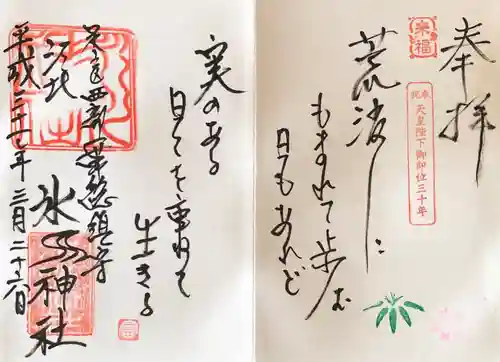 奉拝
来福
奉祝 天皇陛下御即位三十年
荒波に
もまれて歩む
日もあれど
実のある
日々を重ねて
生きる
足立西新井惣鎮守
江北
氷川神社
平成三十一年三月二十六日